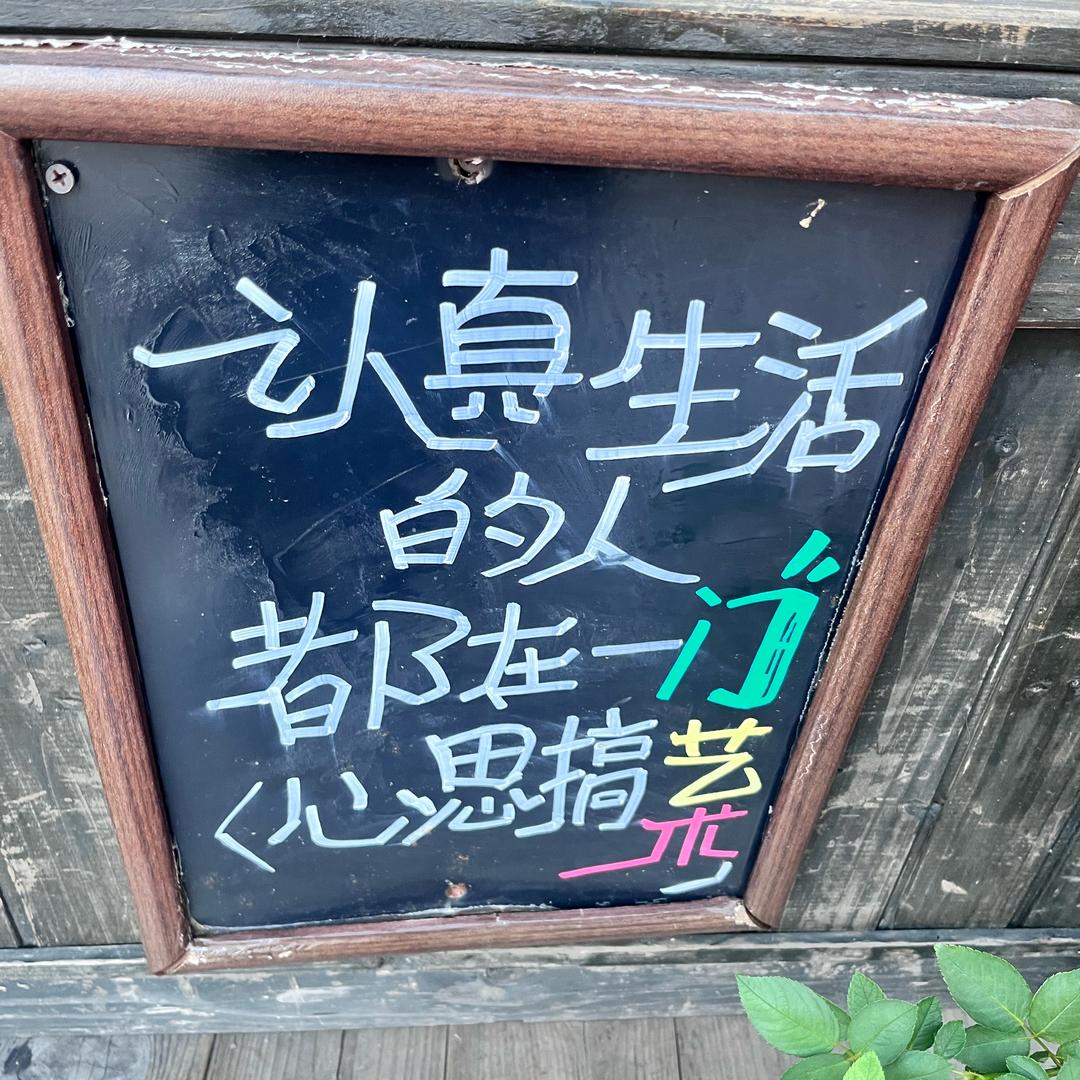 认真生活
的人
都在一门
心思搞艺术